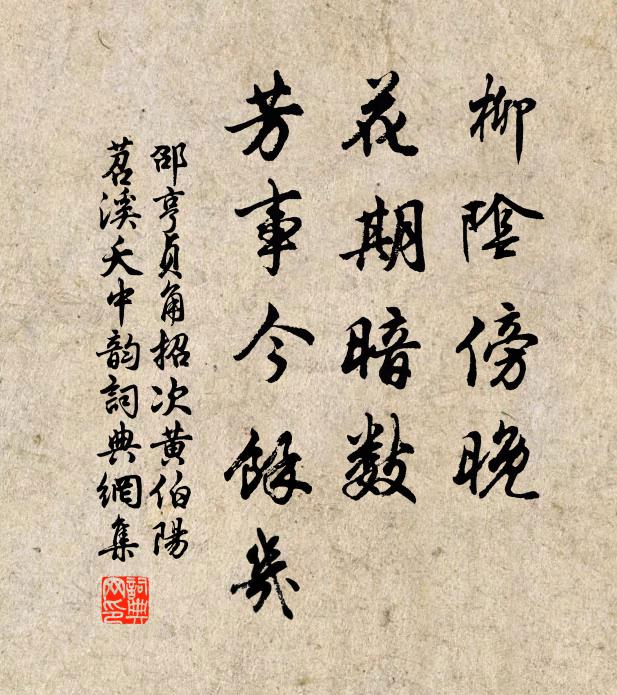 柳陰傍晚
花期暗數
芳事今餘幾
邵亨貞角招次黄伯陽
苕溪夭中韵詞典網集
詞典網印